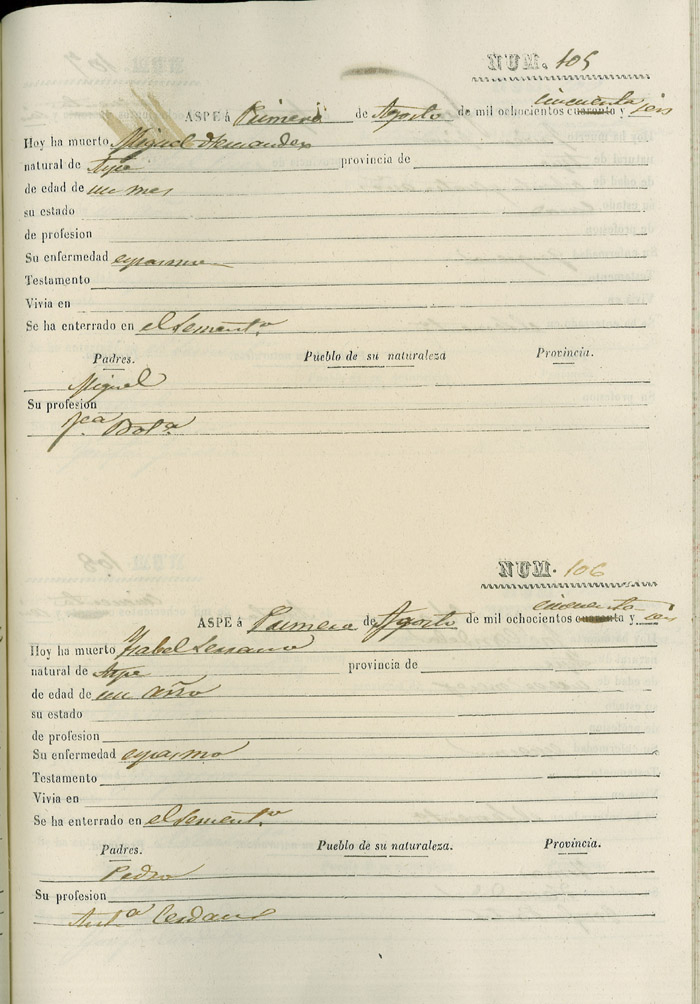 NUM. 105
cincuenta
ASPE á Primero de Agosto de mil ochocientos cuarenta y seis
Hoy ha muerto Miguel Hernandes
natural de Aspe provincia de
de edad de un mes
su estado
de profesion
Su enfermedad espasmo
Testamento
Vivia en
Se ha enterrado en el Sement.º
Padres. Pueblo de su naturaleza Provincia.
Miguel
Su profesion
Fca Bot.ª
NUM. 106
cincuenta
ASPE á Primero de Agosto de mil ochocientos cuarenta y seis
Hoy ha muerto Ysabel Serrano
natural de Aspe provincia de
de edad de un año
su estado
de profesion
Su enfermedad espasmo
Testamento
Vivia en
Se ha enterrado en el Sement.º
Padres. Pueblo de su naturaleza. Provincia.
Pedro
Su profesion
Ant.ª Cerdan